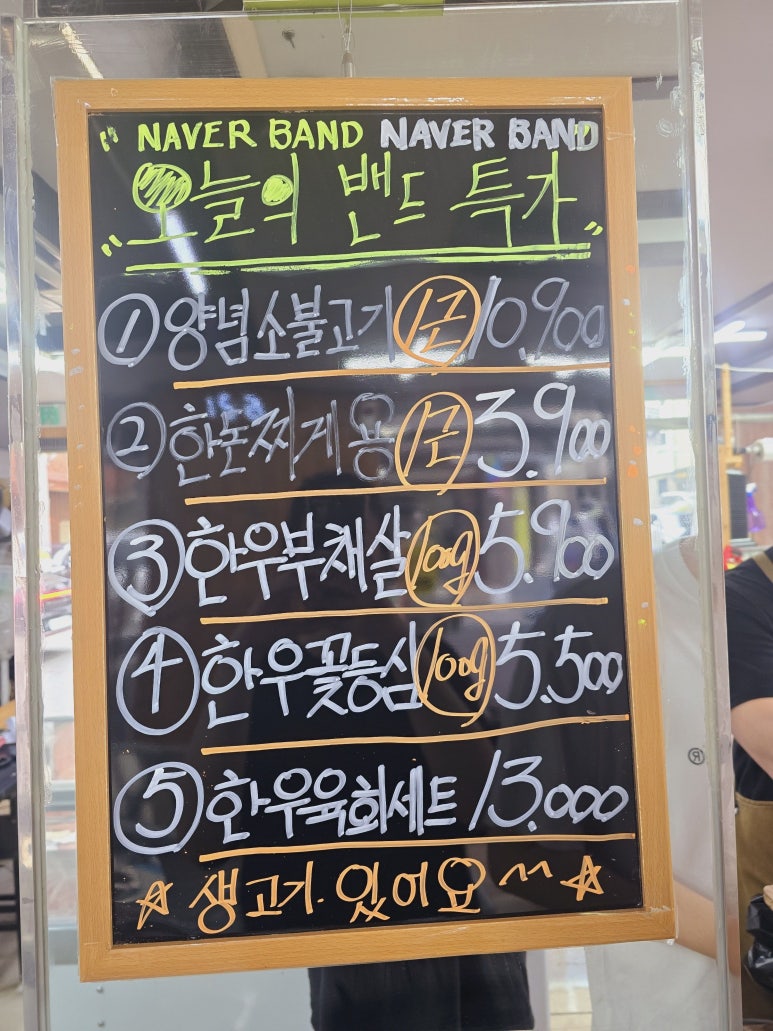 " NAVER BAND NAVER BAND
오늘의 밴드 특가 "
① 양념소불고기 1근 10.900
② 한돈찌개용 1근 3.900
③ 한우부채살 100g 5.900
④ 한우꽃등심 100g 5.500
⑤ 한우육회세트 13.000
☆ 생고기.있어요 ~ ☆
®